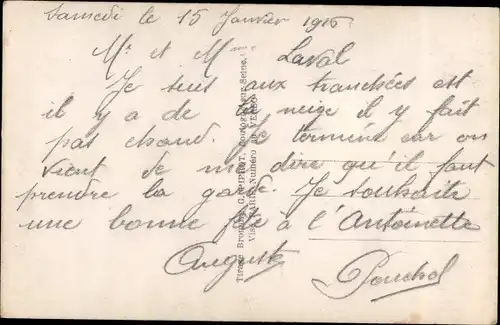 Samedi le 15 Janvier 1916
Mr et Mme Laval
Je suis aux tranchées est
il y a de la neige il y fait
pas chaud. Je termine car on
vient de me dire qu'il faut
prendre la garde. Je souhaite
une bonne fête à l'Antoinette
Auguste Ponchol